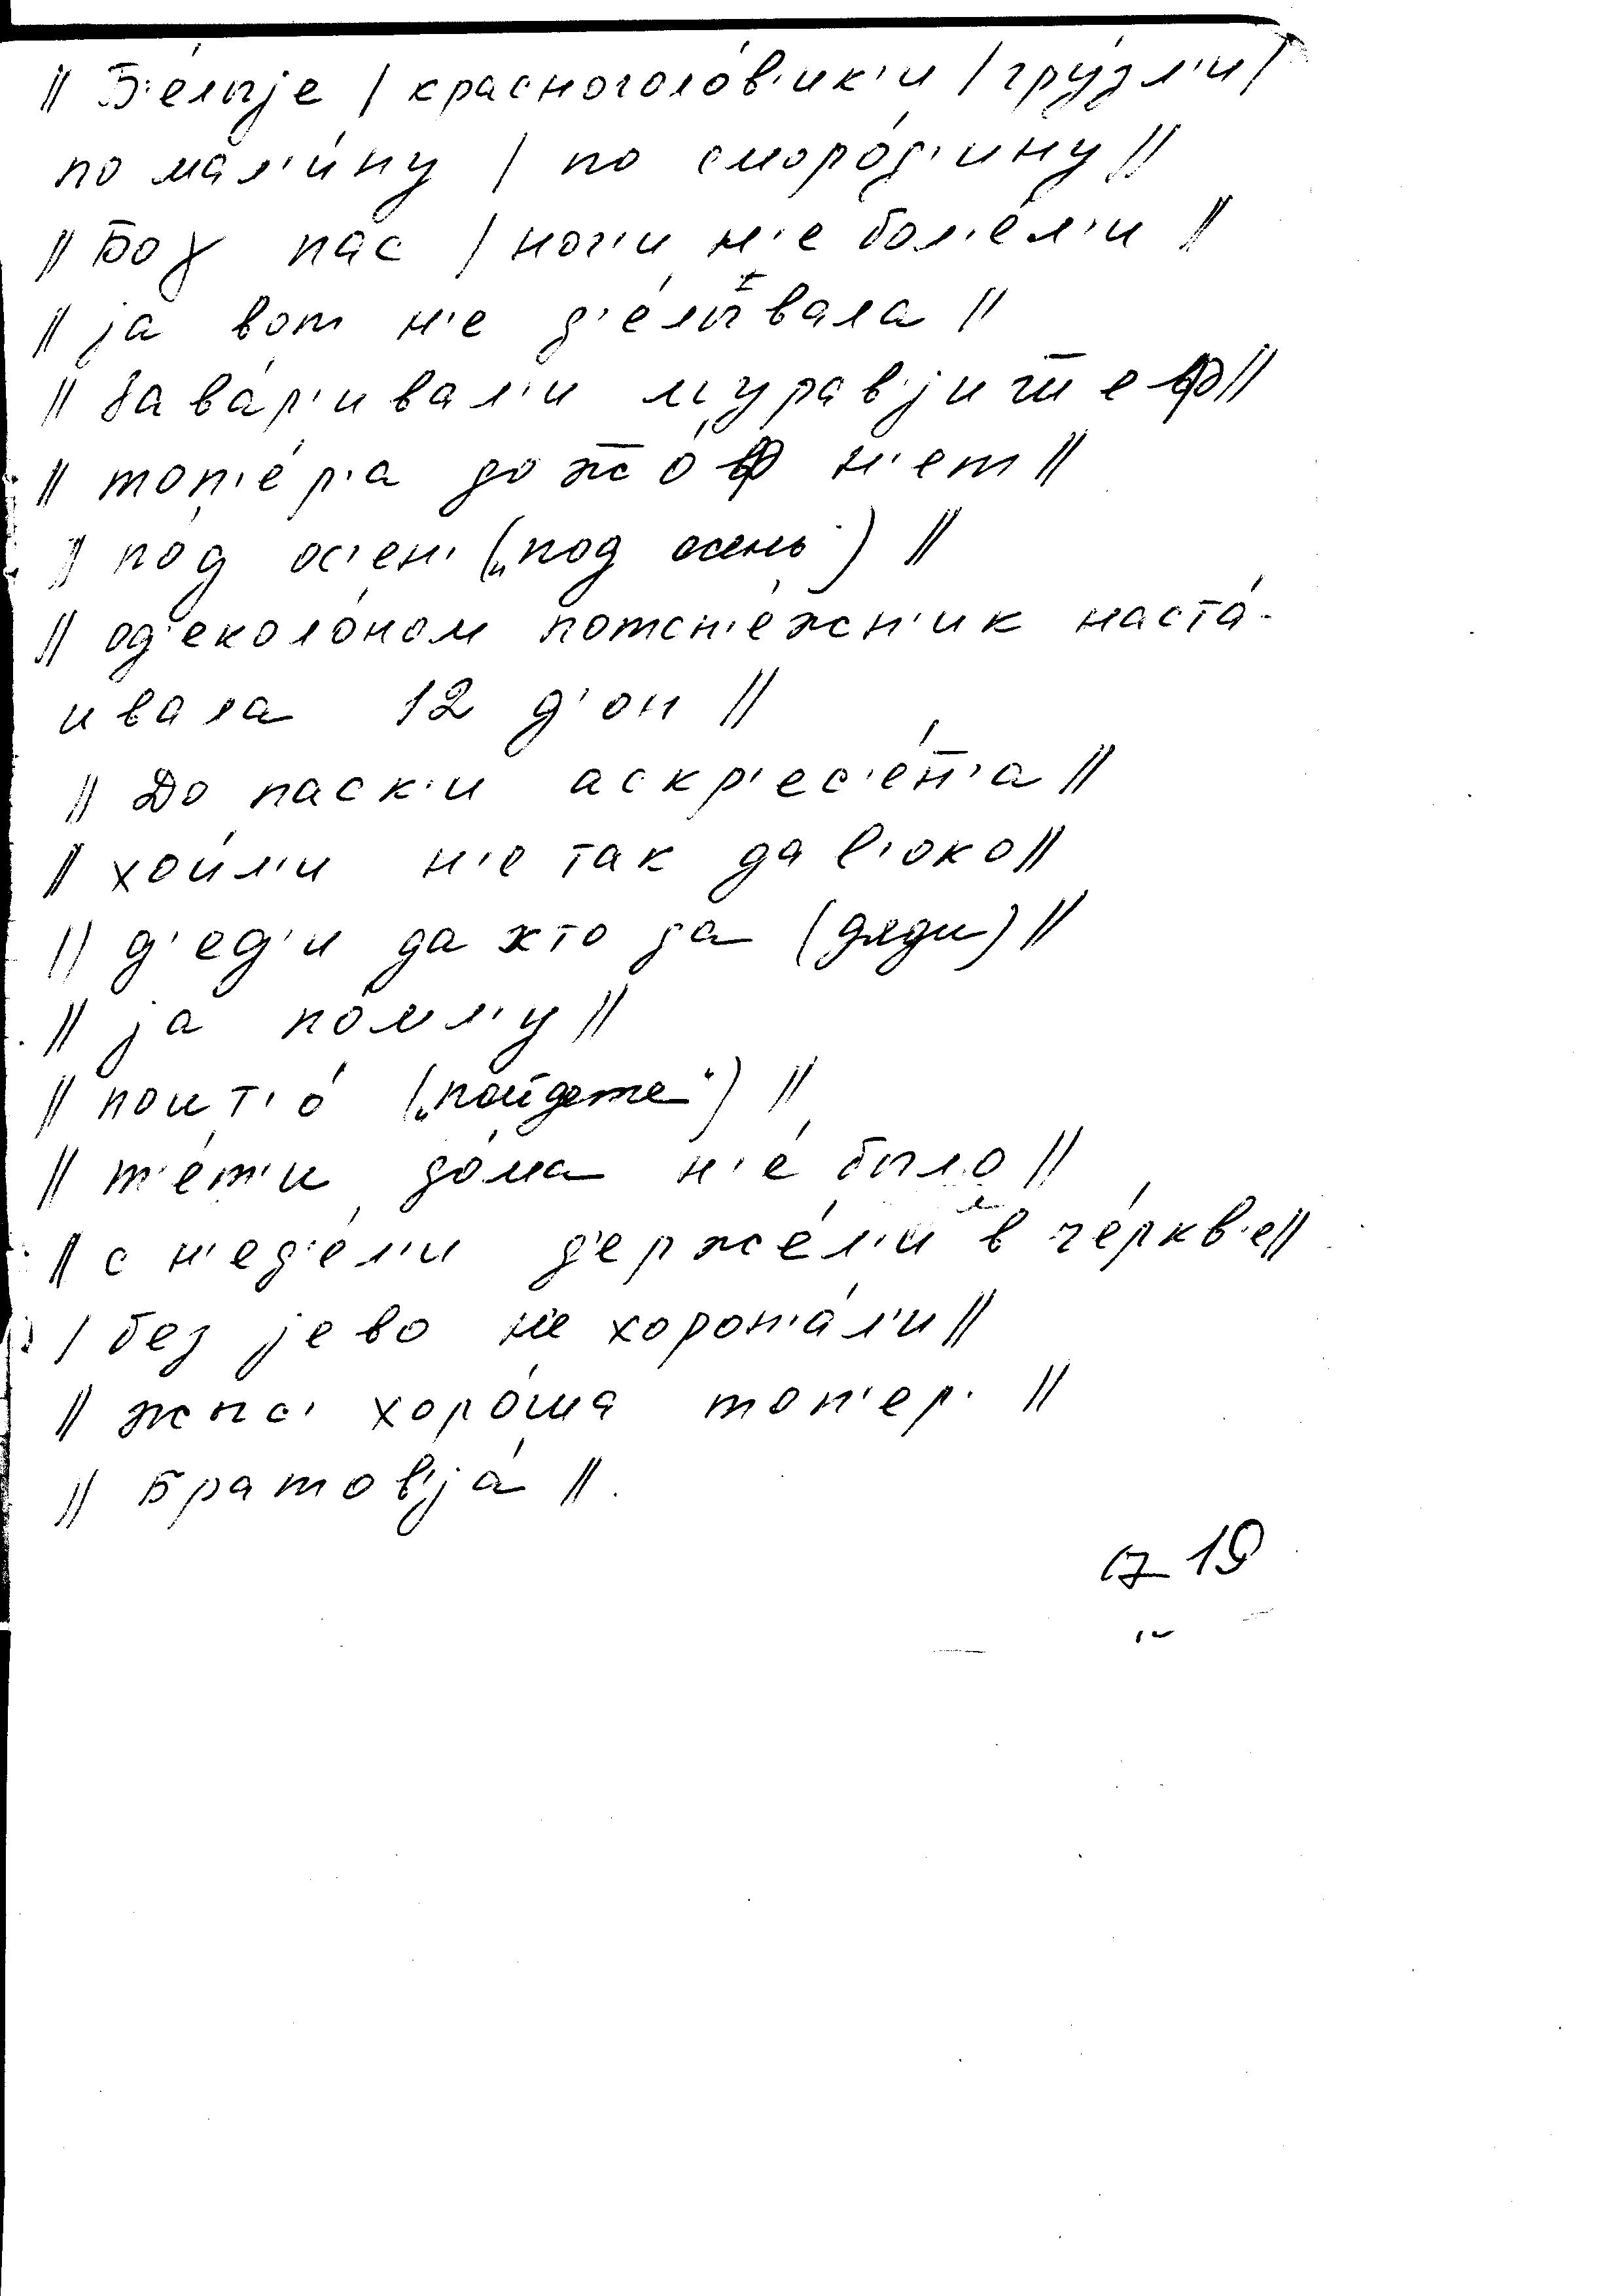 // Б'е́лыjе / красноголо́в'ик'и / гру́зл'и /
по мал'и́ну / по сморо́д'ину //
// Боγ пас / ног'и н'е бол'е́л'и //
// jа вот н'е д'е́лывала //
// Зава́р'ивал'и мурав'jиш̅еф //
// топ'е́р'а дож̅о́ф н'ет //
// по́д ос'ен' („под осень“) //
// од'еколо́ном потсн'е́жн'ик наста́-
ивала 12 д'он //
// До паск'и аскр'ес'е́н̅'а //
// хоил'и н'е так дал'око //
// д'ед'и да хто да (дяди) //
// jа по́мл'у //
// поит'о́ („пойдете“) //
// т'е́т'и до́ма н'е́ было //
// с н'ед'е́л'и д'ерже́л'и в че́ркв'е //
/ без jево н'е хорон'а́л'и //
// жыс' хоро́ша топ'ер' //
// Братов'jа́ //.
19